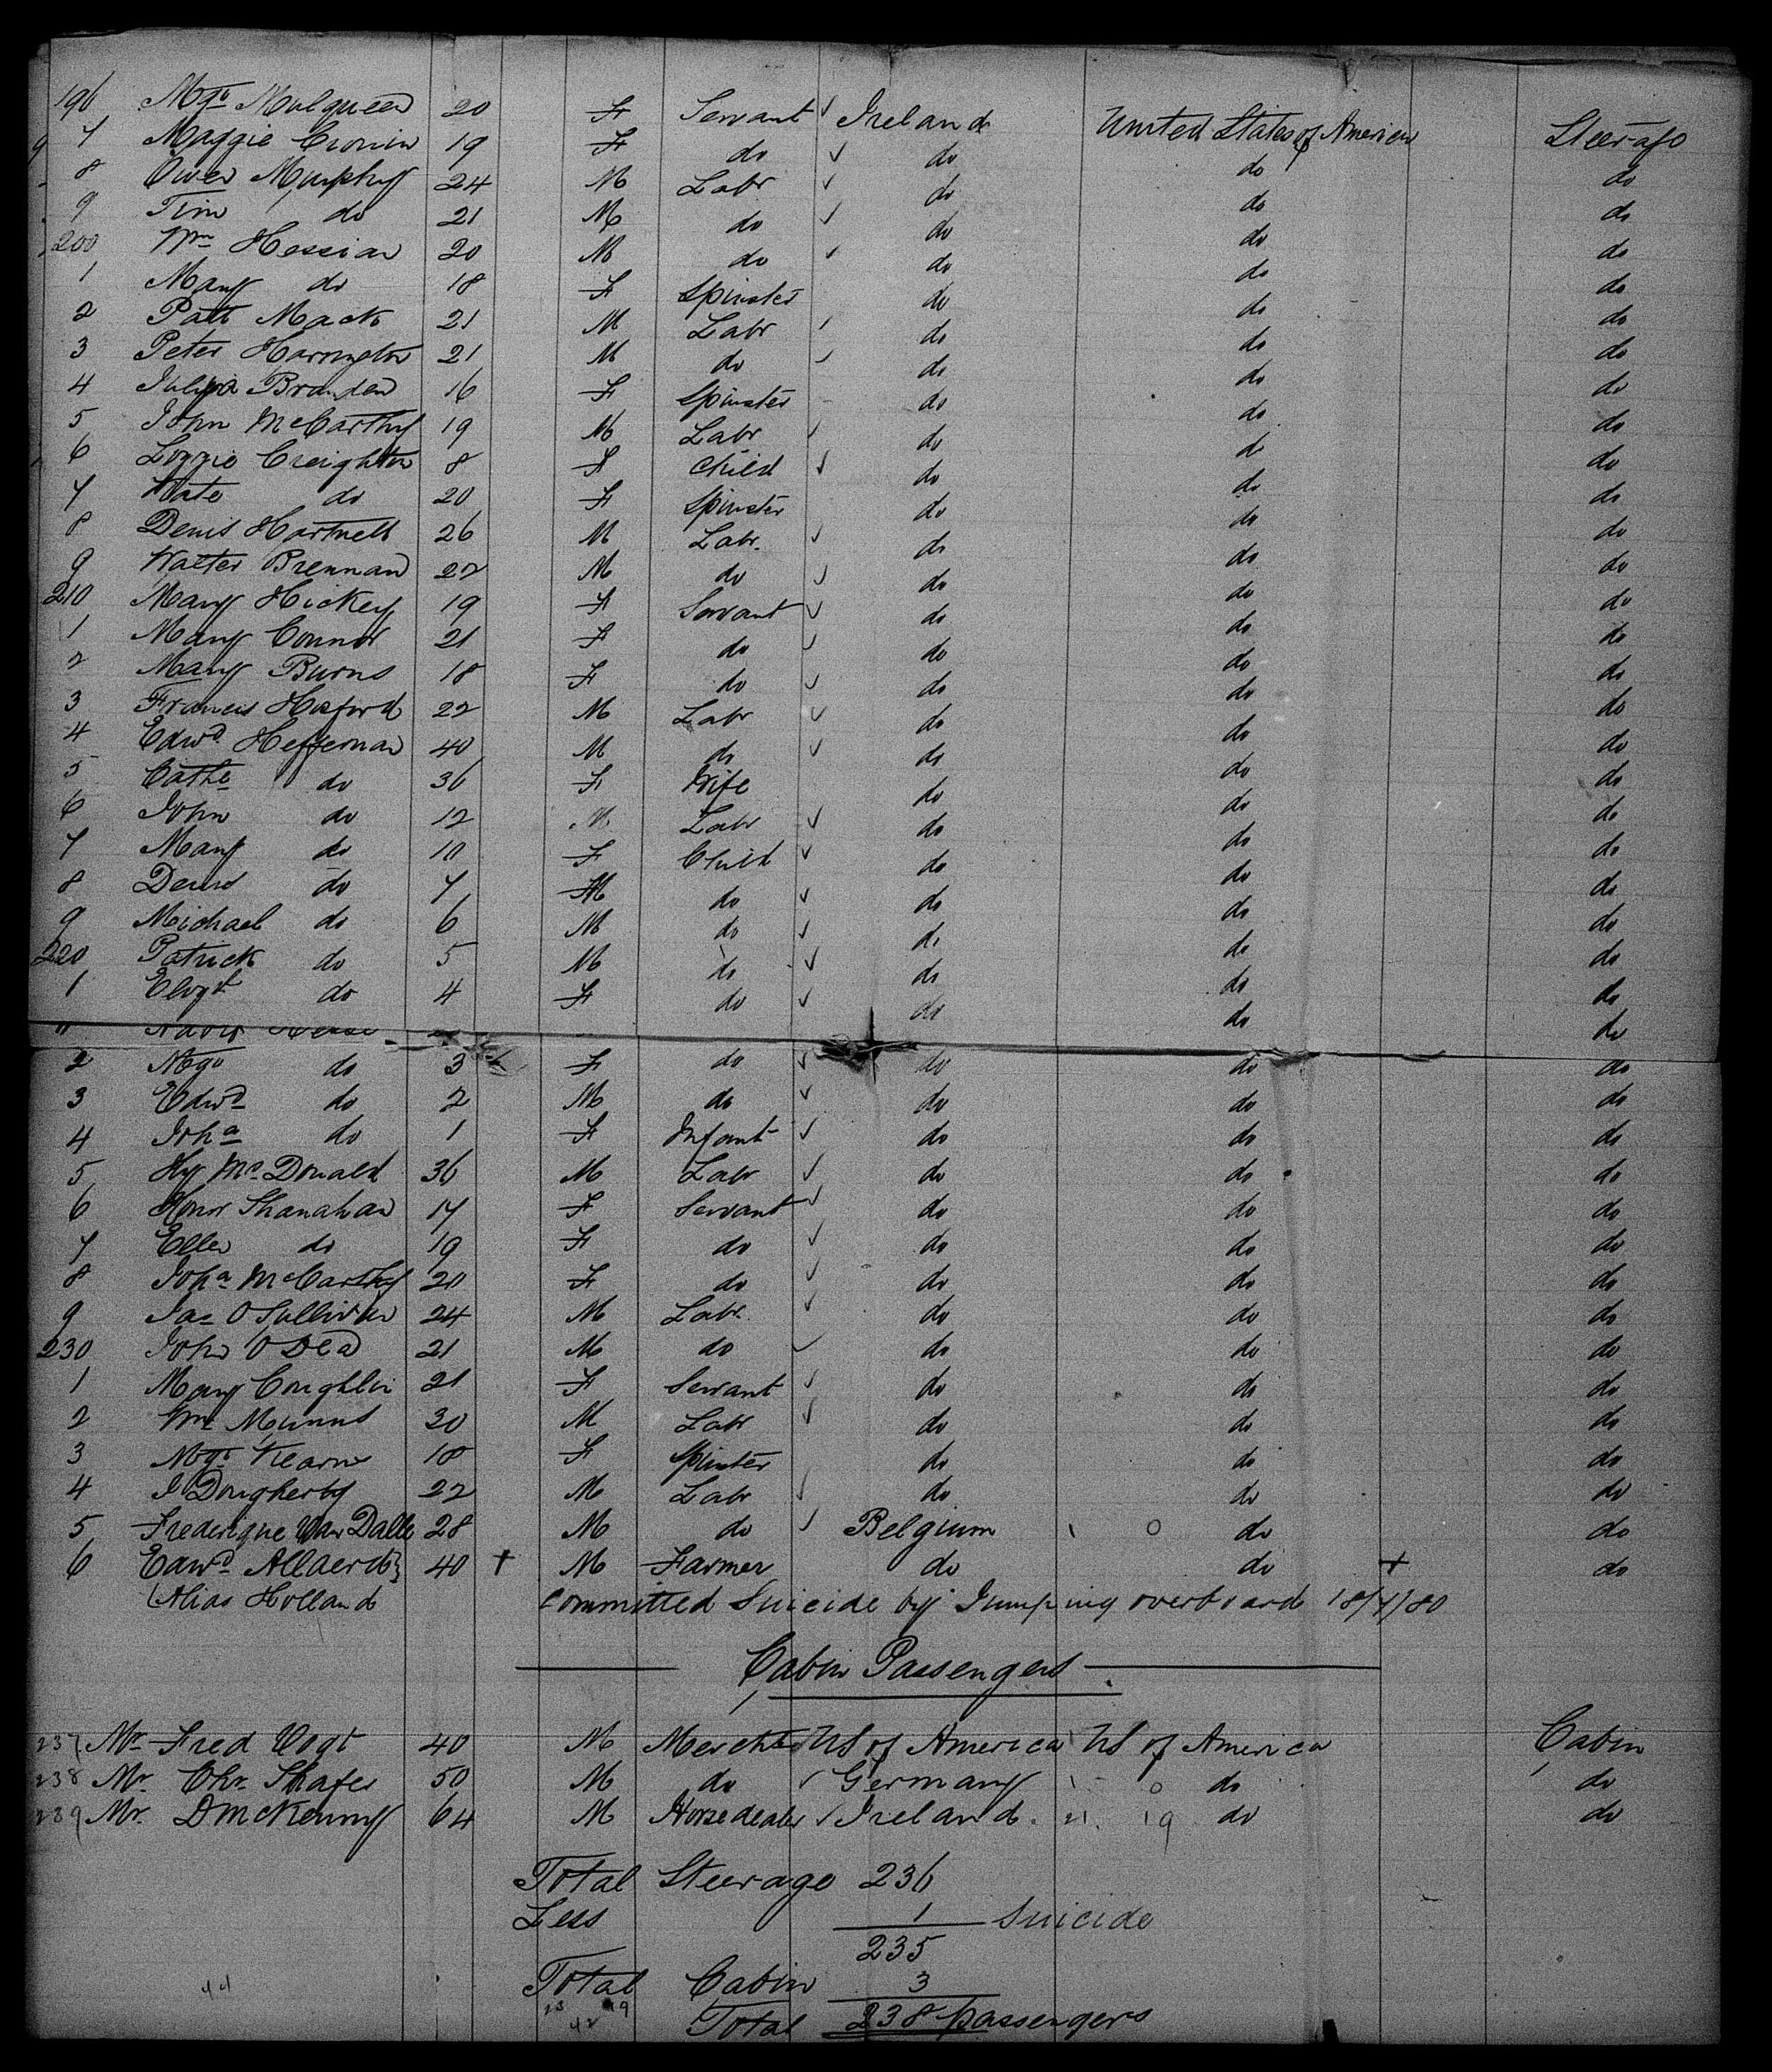 196 Mgt Mulqueen 20 F Servant ✓ Ireland United States of America Steerage
7 Maggie Cronin 19 F do ✓ do do do
8 Owen Murphy 24 M Labr ✓ do do do
9 Tim do 21 M do ✓ do do do
200 Wm Hession 20 M do ✓ do do do
1 Mary do 18 F Spinster do do do
2 Patt Mack 21 M Labr ✓ do do do
3 Peter Harrington 21 M do ✓ do do do
4 Julia 16 F Spinster do do do
5 John McCarthy 19 M Labr ✓ do do do
6 Lizzie Creighton 8 F Child ✓ do do do
7 Kate do 20 F Spinster do do do
8 Denis Hartnett 26 M Labr. ✓ do do do
9 Walter Brennan 22 M do ✓ do do do
210 Mary Hickey 19 F Servant ✓ do do do
1 Mary Connor 21 F do ✓ do do do
2 Mary Burns 18 F do ✓ do do do
3 Francis Hosford 22 M Labr ✓ do do do
4 Edwd Heffernan 40 M do ✓ do do do
5 Cathe do 36 F Wife do do do
6 John do 12 M Labr ✓ do do do
7 Mary do 10 F Child ✓ do do do
8 Denis do 7 M do ✓ do do do
9 Michael do 6 M do ✓ do do do
220 Patrick do 5 M do ✓ do do do
1 Elizt do 4 F do ✓ do do do
" do
2 Mgt do 3 F do ✓ do do do
3 Edwd do 2 M do ✓ do do do
4 Joha do 1 F Infant ✓ do do do
5 Hy McDonald 36 M Labr ✓ do do do
6 Honor Shanahan 17 F Servant ✓ do do do
7 Ellen do 19 F do ✓ do do do
8 Joha McCarthy 20 F do ✓ do do do
9 Jas O Sullivan 24 M Labr. ✓ do do do
230 John O Dea 21 M do ✓ do do do
1 Mary Coughlin 21 F Servant ✓ do do do
2 Wm 30 M Labr ✓ do do do
3 Mgt Kearn 18 F Spinster do do do
4 J Dougherty 22 M Labr ✓ do do do
5 Frederique Van Dalle 28 M do ✓ Belgium do do
6 Edwd Allaerd} 40 + M Farmer do do + do
(Alias Holland committed Suicide by Jumping overboard 18/4/80
Cabin Passengers
237 Mr Fred Vogt 40 M Mercht US of America US of America Cabin
238 Mr. Chr. Shafer 50 M do ✓ Germany do do
239 Mr. D McKenny 64 M Horsedealer ✓ Ireland. 21. 19 do do
Total Steerage 236
Less 1 Suicide
235
Total Cabin 3
Total 238 passengers